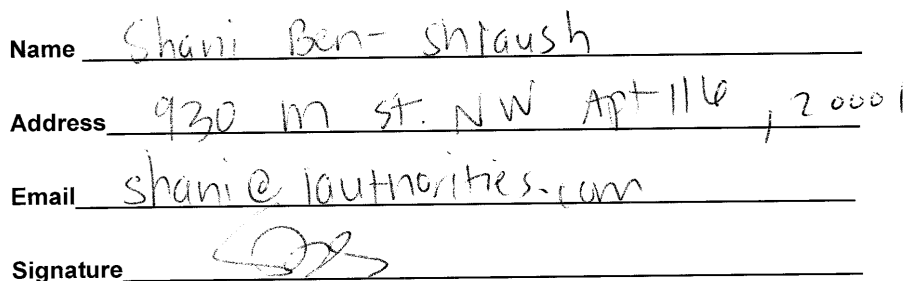 Name Shani Ben- Shlaush
Address 930 m st. NW Apt 116, 20001
Email shani@1authorities.com
Signature